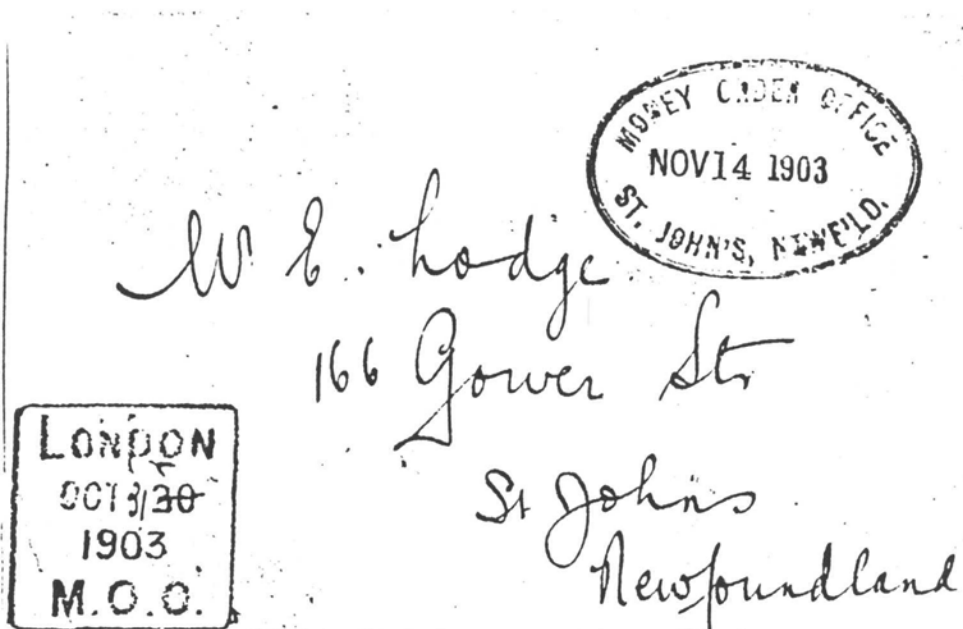 MONEY ORDER OFFICE
NOV 14 1903
ST. JOHN'S, NEWF'LD.
W E. Lodge
166 Gower Str
St Johns
Newfoundland
LONDON
OCT 30
1903
M.O.O.